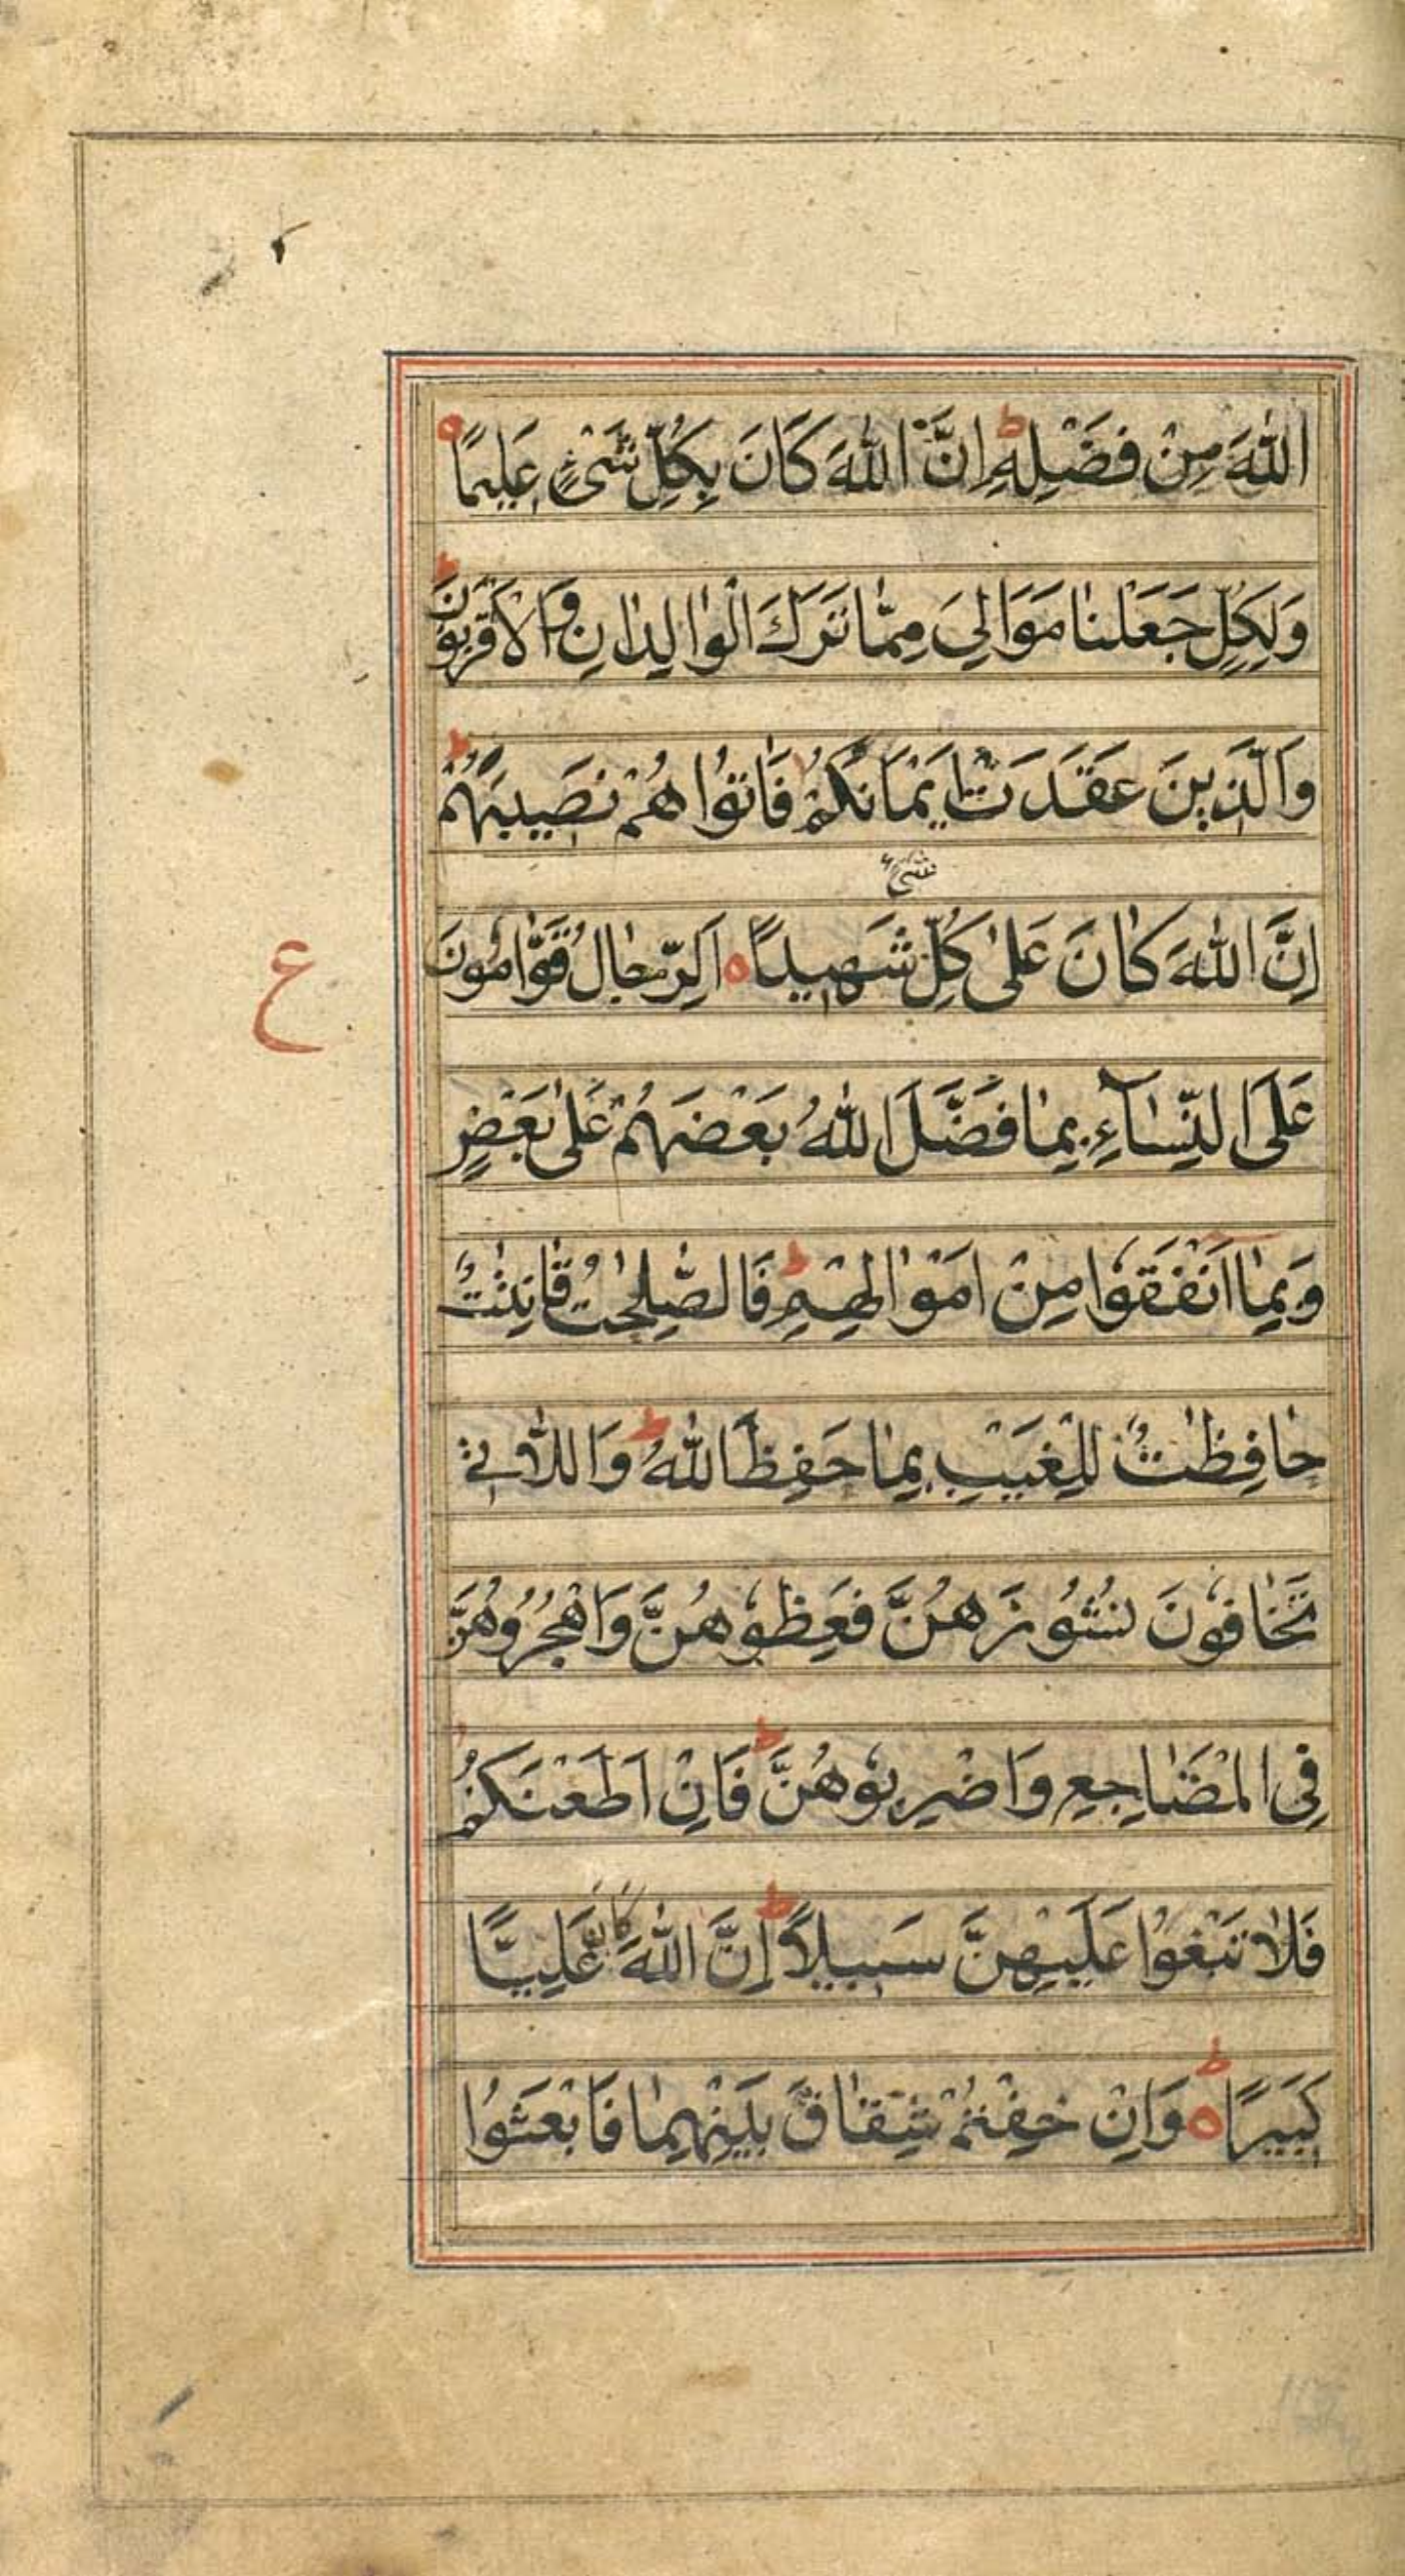 اللّٰهَ مِنْ فَضْلِهٖ ط اِنَّ اللّٰهَ كَانَ بِكُلِّ شَیْءٍ عَلِیْمًا ه
وَلِكُلٍّ جَعَلْنَا مَوَالِیَ مِمَّا تَرَكَ الْوَالِدَانِ وَالْاَقْرَبُوْنَ ط
وَالَّذِیْنَ عَقَدَتْ اَیْمَانُكُمْ فَاٰتُوْا هُمْ نَصِیْبَهُمْ ط
شَیْءٍ
اِنَّ اللّٰهَ كَانَ عَلٰی كُلِّ شَهِیْدًا ه اَلرِّجَالُ قَوَّامُوْنَ
ع
عَلَی النِّسَآءِ بِمَا فَضَّلَ اللّٰهُ بَعْضَهُمْ عَلٰی بَعْضٍ
وَبِمَا اَنْفَقُوْا مِنْ اَمْوَالِهِمْ ط فَالصّٰلِحٰتُ قَانِتٰتٌ
حَافِظٰتٌ لِلْغَیْبِ بِمَا حَفِظَ اللّٰهُ ط وَاللَّاتِیْ
تَخَافُوْنَ نُشُوْزَهُنَّ فَعِظُوْهُنَّ وَاهْجُرُوْهُنَّ
فِی الْمَضَاجِعِ وَاضْرِبُوْهُنَّ ط فَاِنْ اَطَعْنَكُمْ
فَلَا تَبْغُوْا عَلَیْهِنَّ سَبِیْلًا ط اِنَّ اللّٰهَ كَانَ عَلِیًّا
كَبِیْرًا ه ط وَاِنْ خِفْتُمْ شِقَاقَ بَیْنِهِمَا فَابْعَثُوْا